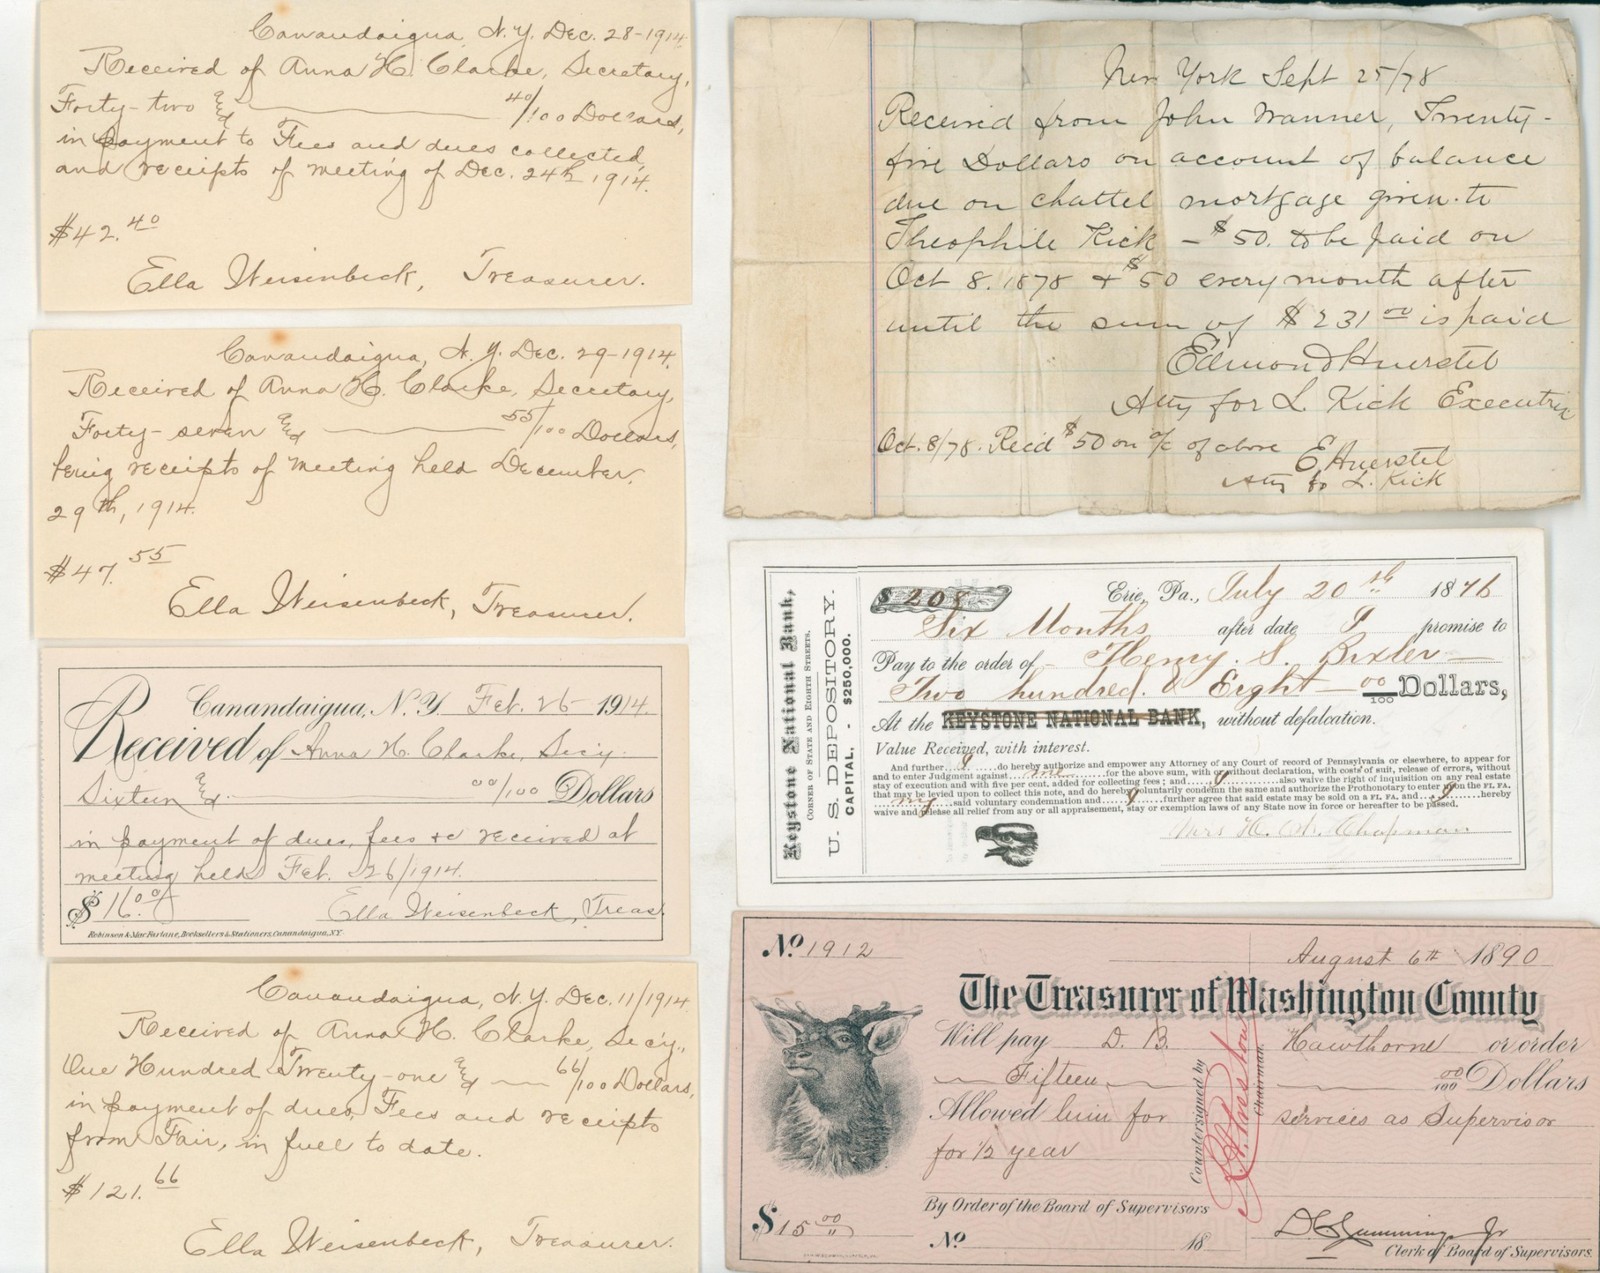 Canandaigua, N.Y. Dec. 28-1914
Received of Anna H. Clarke, Secretary,
Forty-two and 40/100 Dollars,
in payment to Fees and dues collected,
and receipts of meeting of Dec. 24th 1914.
$42.40
Ella Weisenbeck, Treasurer.
Canandaigua, N.Y. Dec. 29-1914.
Received of Anna H. Clarke, Secretary,
Forty-seven and 55/100 Dollars,
being receipts of meeting held December
29th, 1914.
$47.55
Ella Weisenbeck, Treasurer.
Canandaigua, N.Y. Feb. 26-1914.
Received of Anna H. Clarke, Sec'y.
Sixteen and 00/100 Dollars
in payment of dues, fees &c received at
meeting held Feb. 26/1914.
$16.00
Ella Weisenbeck, Treas.
Robinson & MacFarlane, Booksellers & Stationers, Canandaigua, N.Y.
Canandaigua, N.Y. Dec. 11/1914
Received of Anna H. Clarke, Sec'y.,
One Hundred Twenty-one and 66/100 Dollars,
in payment of dues, Fees and receipts
from Fair, in full to date.
$121.66
Ella Weisenbeck, Treasurer.
New York Sept 25/78
Received from John Wanner, Twenty-
five Dollars on account of balance
due on chattel mortgage given to
Theophile Kick - $50. to be paid on
Oct 8. 1878 & $50 every month after
until the sum of $231 00 is paid
Edmond Huerstel
Atty for L Kick Executrix
Oct. 8/78. Recd $50 on a/c of above
E Huerstel
Atty for L. Kick
Keystone National Bank,
CORNER OF STATE AND EIGHTH STREETS.
U. S. DEPOSITORY.
CAPITAL. - $250,000.
$208
Erie, Pa., July 20th 1876
Six Months after date I promise to
Pay to the order of Henry. S. Bixler
Two hundred & Eight 00/100 Dollars,
At the KEYSTONE NATIONAL BANK, without defalcation.
Value Received, with interest.
And further I do hereby authorize and empower any Attorney of any Court of record of Pennsylvania or elsewhere, to appear for
and to enter Judgment against me for the above sum, with or without declaration, with costs of suit, release of errors, without
stay of execution and with five per cent, added for collecting fees; and I also waive the right of inquisition on any real estate
that may be levied upon to collect this note, and do hereby voluntarily condemn the same and authorize the Prothonotary to enter upon the FI. FA.
my said voluntary condemnation and I further agree that said estate may be sold on a FI. FA., and I hereby
waive and release all relief from any or all appraisement, stay or exemption laws of any State now in force or hereafter to be passed.
Mrs H. A. Chapman
No. 1912
August 6th 1890
The Treasurer of Washington County
Will pay D. B. Hawthorne or order
Fifteen 00/100 Dollars
Allowed him for services as Supervisor
for 1/2 year
Countersigned by
Chairman.
By Order of the Board of Supervisors
$15 00
No. 18
Jr
Clerk of Board of Supervisors.